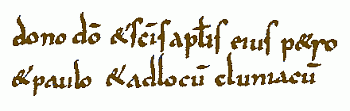 dono dō & sc̄is ap̄lis eius p&ro
& paulo & ad locū cluniacū